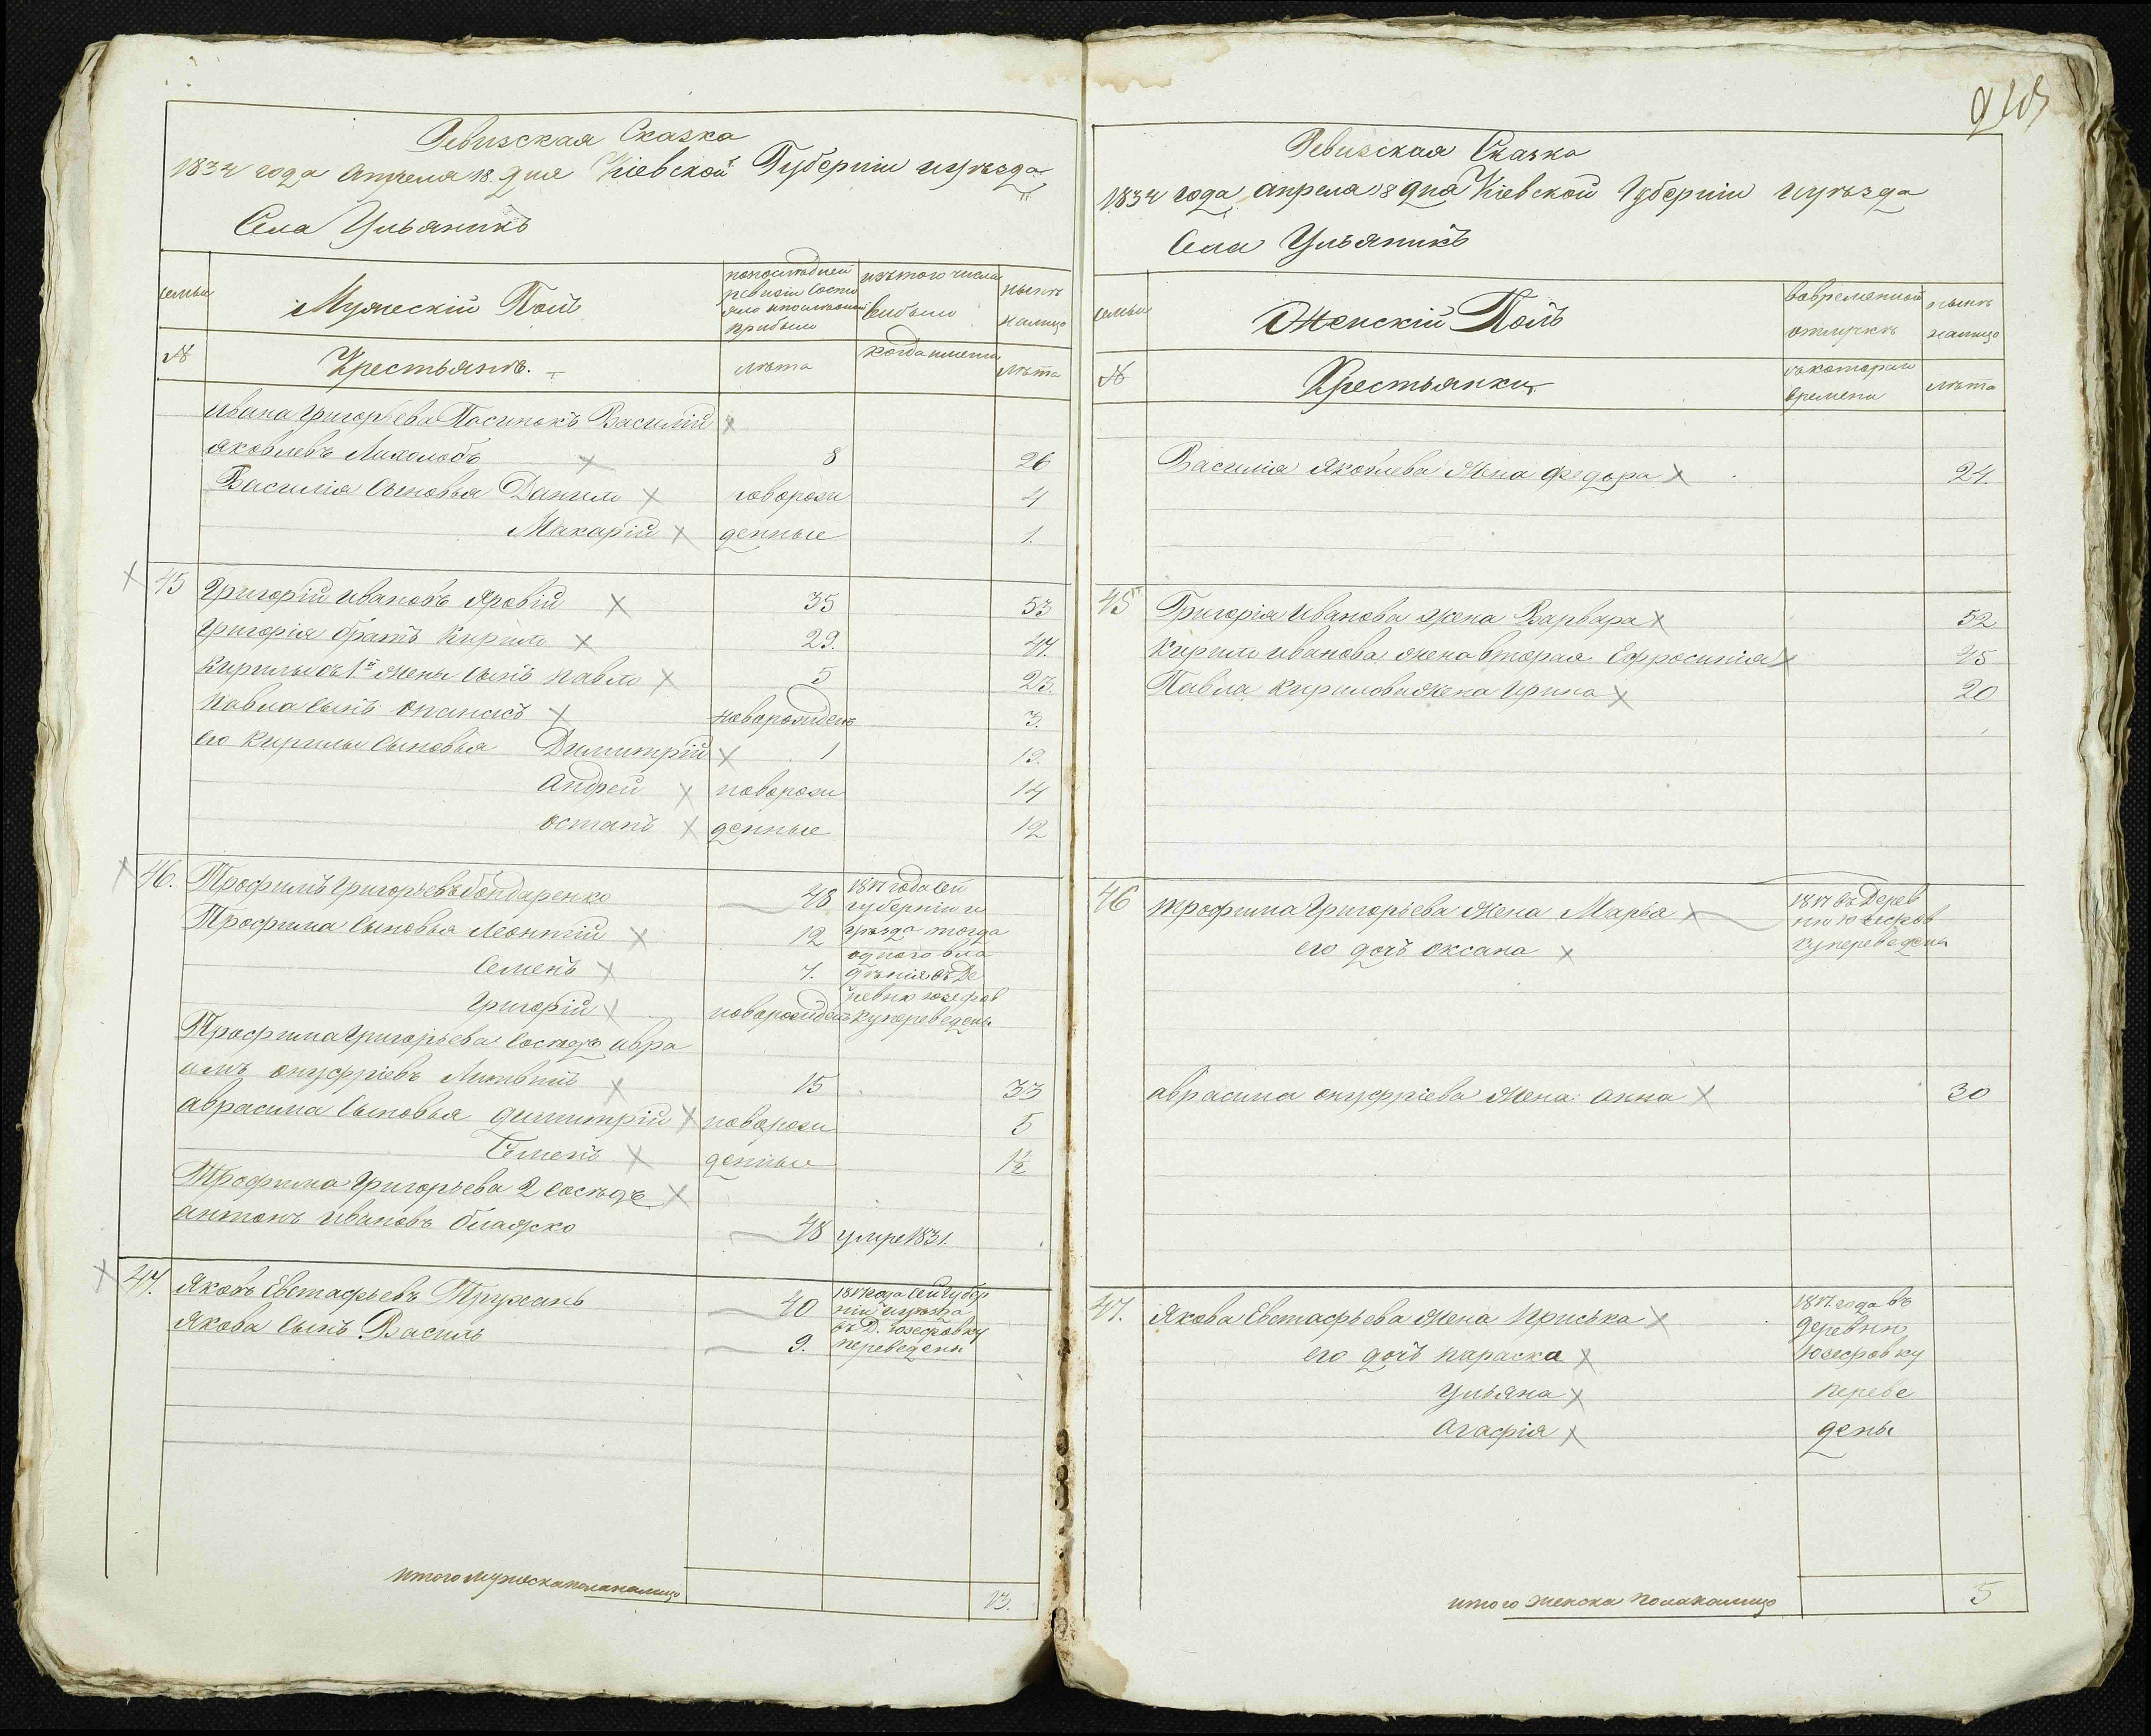 Ревизская Сказка
1834 года Апреля 18 дня Кіевской Губерніи и уѣзда
Села Ульяникъ
семьи
Мужескій Полъ
по последней
ревизіи состо
яло и после оной
прибыло
изъ того числа
выбыло
нынѣ
на лицо
№
Крестьянѣ.
лѣта
когда именно
лѣта
Ивана Григорьева Пасинокъ Василій
Яковлевъ 8 26
Василія сыновья Данило новорож 4
Макарій денные 1.
45 Григорій Ивановъ Яровій 35 53
Григорія братъ Кирило 29. 47.
Кирилы съ 1й жены сынъ Павло 5 23.
Павла сынъ Опанасъ новорожденъ 3.
его Кирилы сыновья Димитрій 1 19.
Андрей новорож 14
Остапъ денные 12
46. Трофимъ Григорьевъ Бондаренко 48
Трофима сыновья Леонтій 12
Семенъ 7.
Григорій новорожденъ
1817 года сей
губерніи и
уѣзда тогда
одного вла
дѣнія въ Де
ревню Юзефов
ку переведены
Трофима Григорьева соседъ Авра
амъ Онуфріевъ Литвинъ 15 33
Аврасима сыновья Димитрій новорож 5
Семенъ денные 1½
Трофима Григорьева 2 соседъ
Антонъ Ивановъ 48 умре 1831.
47. Яковъ Евстафьевъ 40
Якова сынъ Василь 9.
1817 года сей губер
ніи и уѣзда
въ Д. Юзефовку
переведены
итого мужеска пола на лицо 13.
Ревизская Сказка
1834 года апреля 18 дня Кіевской Губерніи и уѣзда
Села Ульяникъ
семьи
Женскій Полъ
во временной
отлучкѣ
нынѣ
на лицо
№
Крестьянки
съ которого
времени
лѣта
Василія Яковлева жена Федора 24.
45 Григорія Иванова жена Варвара 52
Кирила Иванова жена вторая Ефросинія 45
Павла Кирилова жена Ирина 20
46 Трофима Григорьева жена Марья
его дочь Оксана
1817 въ Дерев
ню Юзефов
ку переведены
Аврасима Онуфріева жена Анна 30
47. Якова Евстафьева жена Приська
его дочь Параска
Ульяна
Агафія
1817 года въ
деревню
Юзефовку
переве
дены
итого женска пола на лицо 5